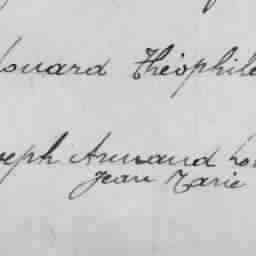 ouard Théophile
seph Armand Lo
Jean Marie